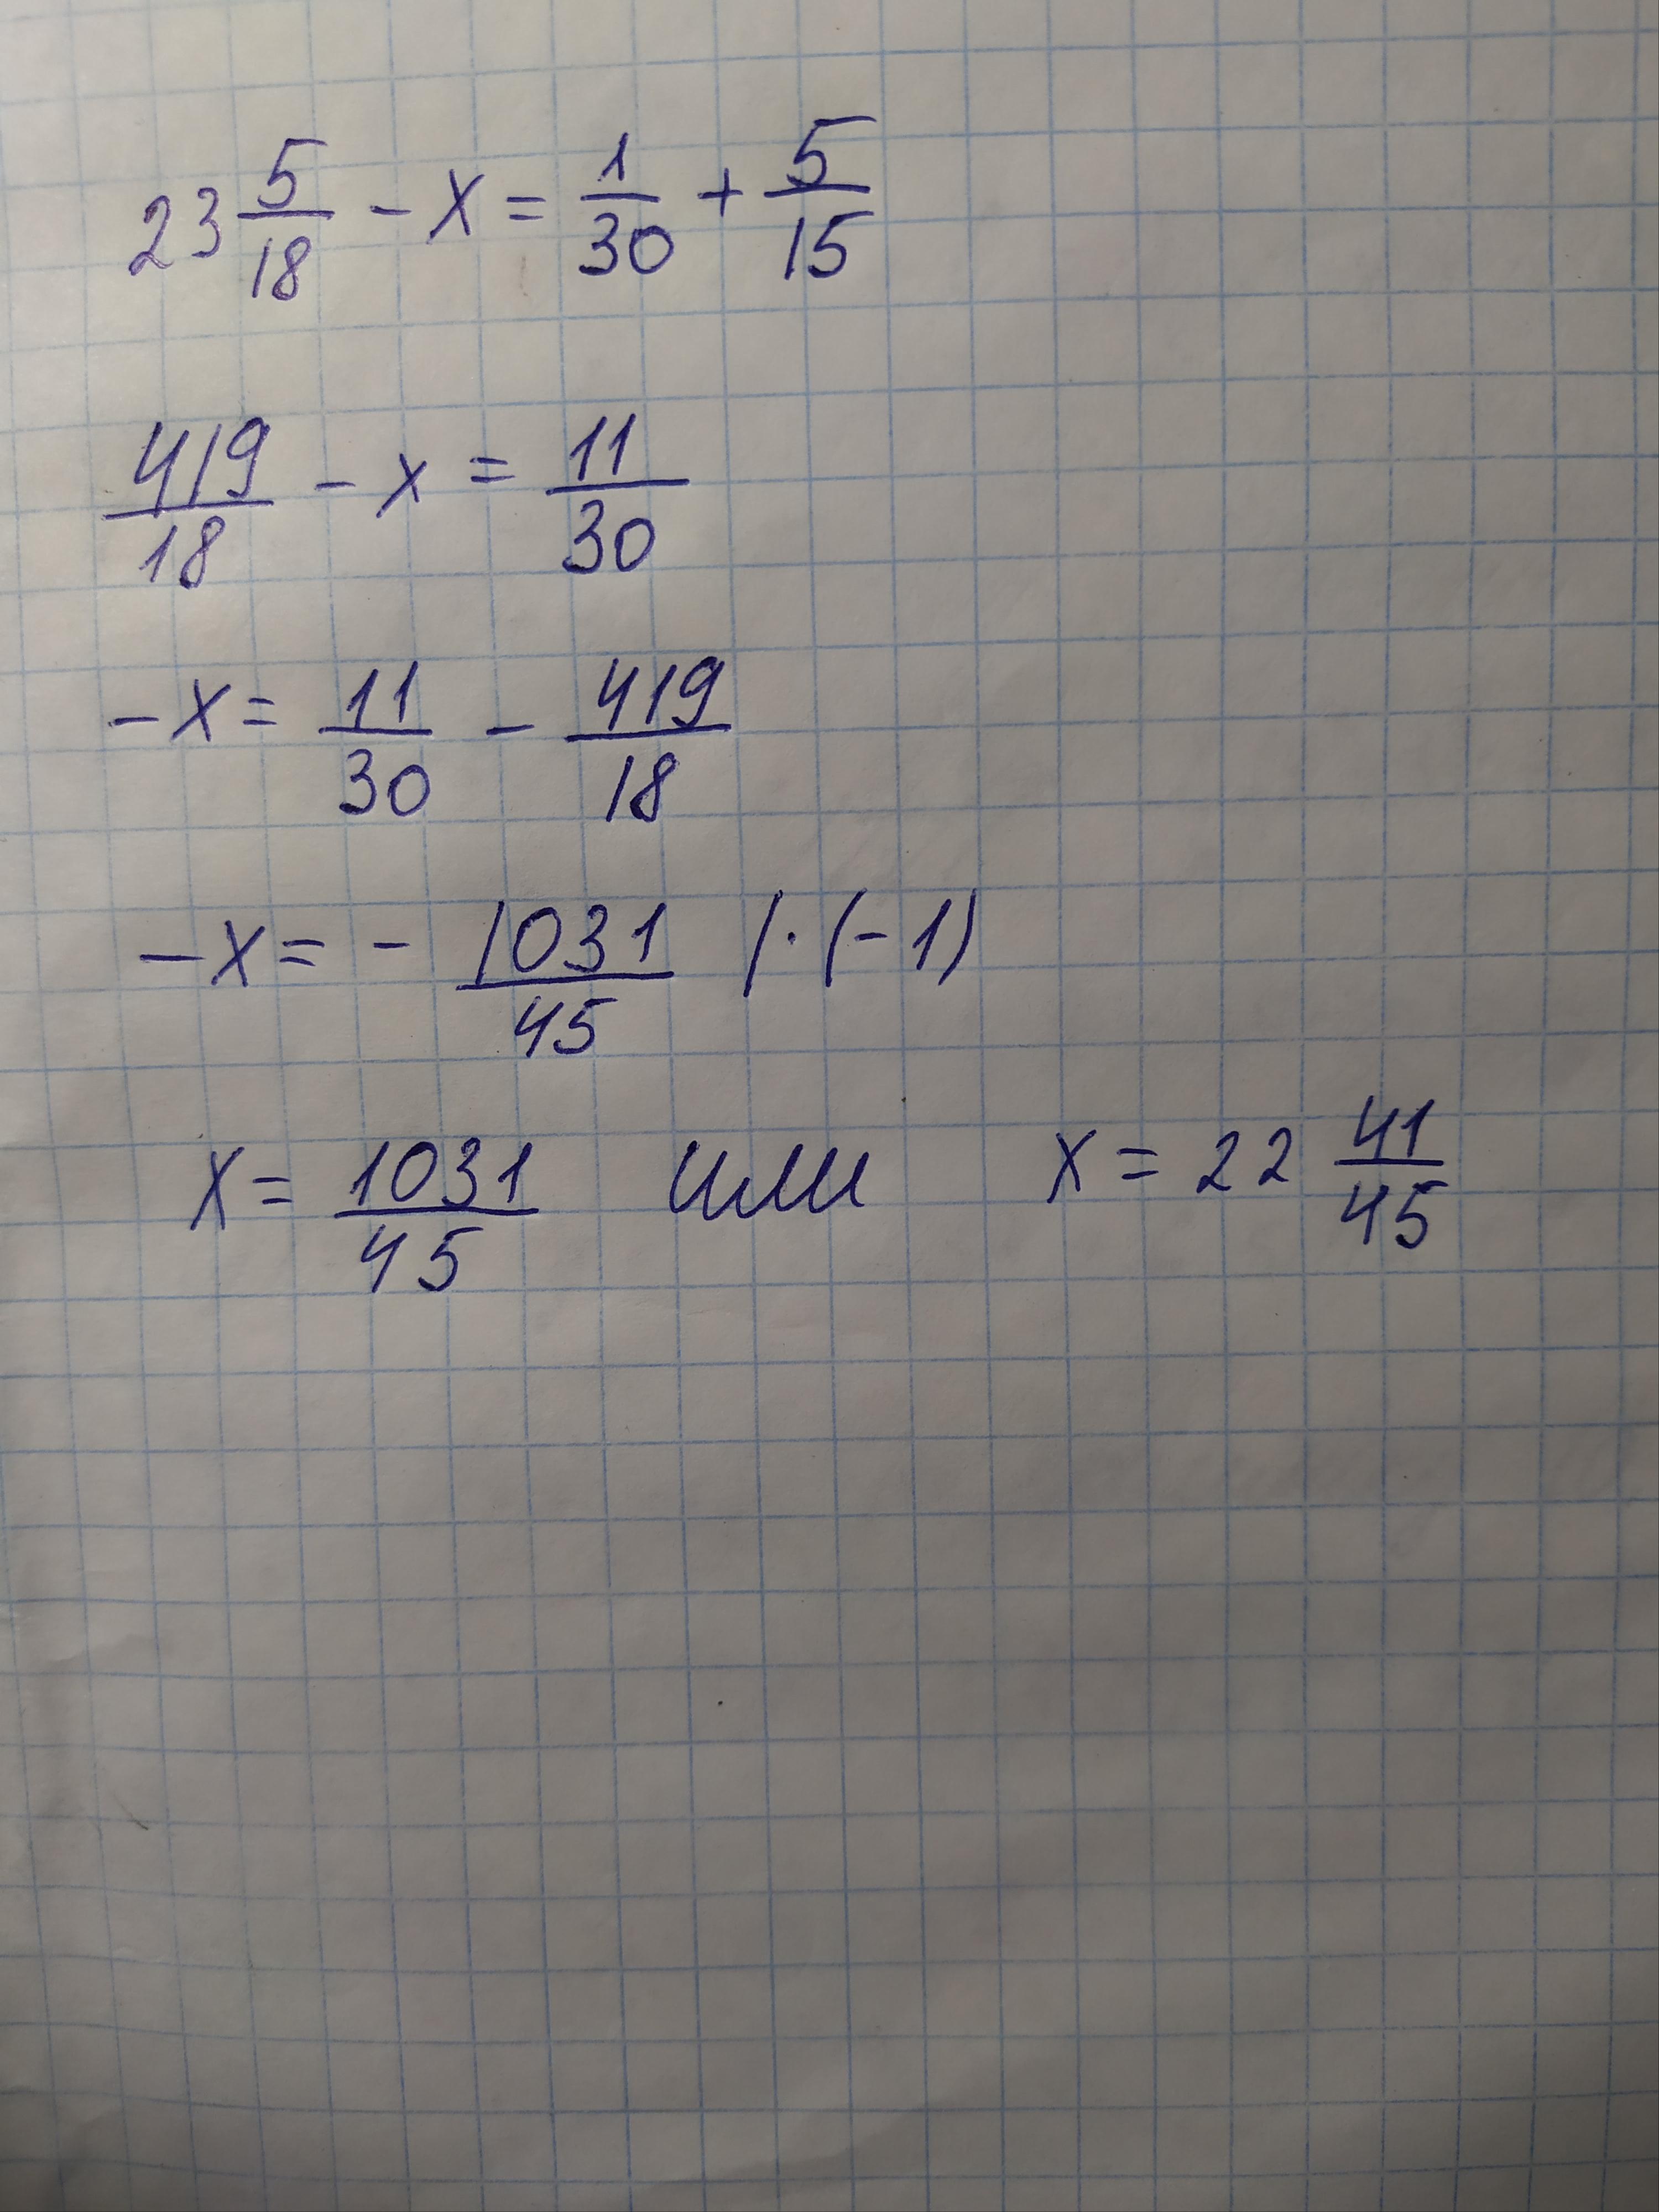 23 5/18 - x = 1/30 + 5/15
419/18 - x = 11/30
-x = 11/30 - 419/18
-x = - 1031/45 |·(-1)
x = 1031/45 или x = 22 41/45